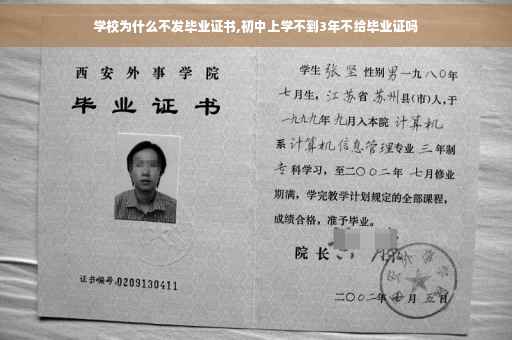 学校为什么不发毕业证书,初中上学不到3年不给毕业证吗
西安外事学院
毕业证书
证书编号:0209130411
学生 张坚 性别 男 一九八〇年
七月生,江苏省苏州县(市)人,于
一九九九年九月入本院 计算机
系 计算机信息管理专业 三 年制
专科学习,至二〇〇二年 七月修业
期满,学完教学计划规定的全部课程,
成绩合格,准予毕业。
院长
二〇〇二年 月 五日